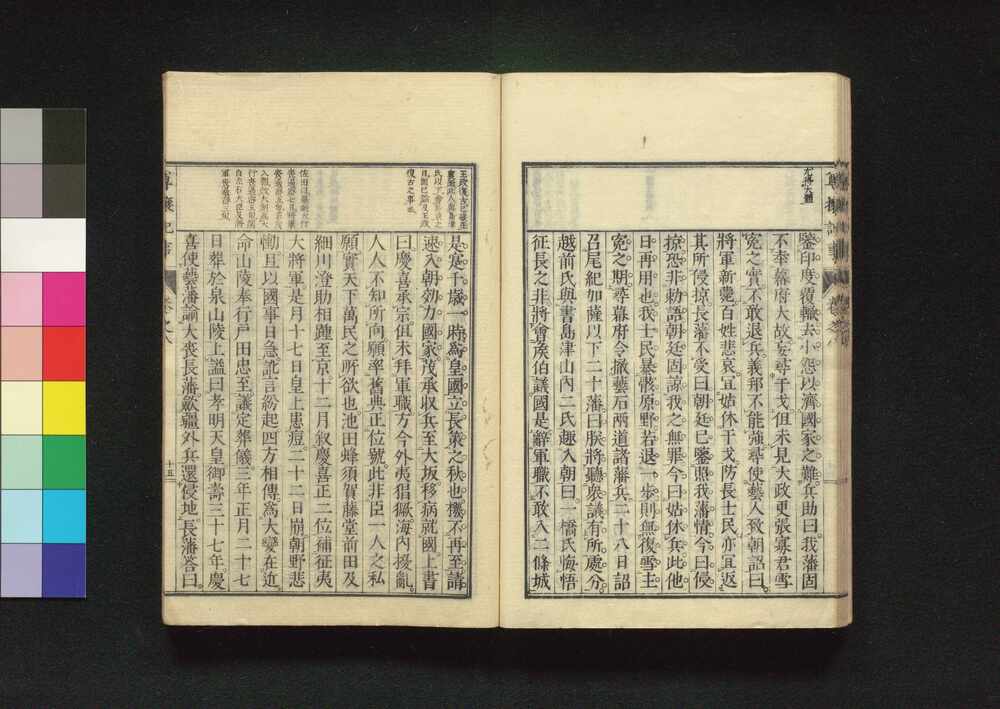 尤得大體
鑒印度覆轍去小怨以濟國家之難兵助曰我藩固
不奉幕府大故妄尋干戈但未見大政更張寡君雪
冤之實不敢退兵義邦不能強尋使藝人致朝詔曰
將軍新薨百姓悲哀宜姑休干戈防長士民亦宜返
其所侵掠長藩不受曰朝廷已鑒照我藩情今曰侵
掠恐非勅語朝廷固諒我之無罪今曰姑休兵此他
日再用也我士民暴骸原野若退一步則無復雪主
冤之期尋幕府令撤藝石兩道諸藩兵二十八日詔
召尾紀加薩以下二十藩曰朕將聽衆議有所處分
越前氏與書島津山內二氏趣入朝曰一橋氏悔悟
征長之非將會侯伯議國是辭軍職不敢入二條城
尊攘紀事
卷之八
十五
是寔千歲一時爲皇國立長策之秋也機不再至請
速入朝効力國家茂承收兵至大坂移病就國上書
曰慶喜承宗但未拜軍職方今外夷猖獗海內擾亂
人人不知所向願率舊典正位號此非臣一人之私
願實天下萬民之所欲也池田蜂須賀藤堂前田及
細川澄助相踵至京十二月敘慶喜正二位補征夷
大將軍是月十七日皇上患痘二十二日崩朝野悲
慟且以國事日急訛言紛起四方相傳爲大變在近
命山陵奉行戶田忠至議定葬儀三年正月二十七
日葬於泉山陵上謚曰孝明天皇御壽三十七年慶
喜使藝藩諭大喪長藩歛疆外兵還侵地長藩答曰